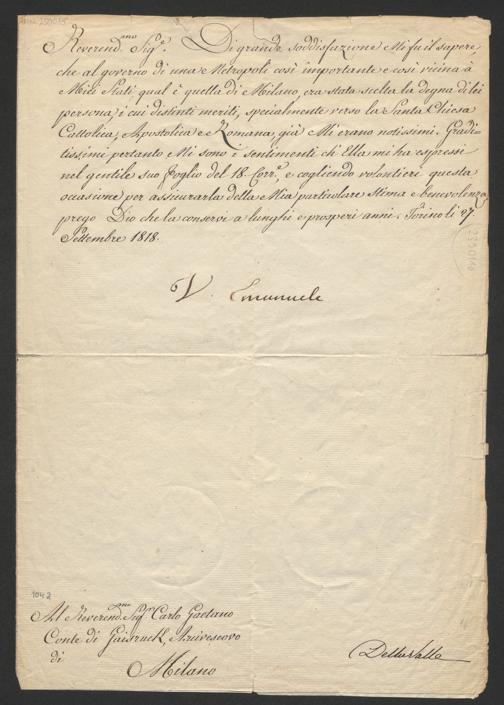 Reverend.mo Sig.e Di grande soddisfazione Mi fu il sapere
che al governo di una Metropoli così importante e così vicina à
Miei Stati qual è quella di Milano, era stata scelta la degna di lei
persona, i cui distinti meriti, specialmente verso la Santa Chiesa
Cattolica, Apostolica e Romana, già Mi erano notissimi. Gradi-
tissimi pertanto Mi sono i sentimenti ch'Ella mi ha espressi
nel gentile suo foglio del 18. Corr.e, e cogliendo volontieri questa
occasione per assicurarla della Mia particolare stima e benevolenza
prego Dio che la conservi a lunghi e prosperi anni. Torino li 27
Settembre 1818.
V. Emanuele
1042
Al Reverend.mo Sig.r Carlo Gaetano
Conte di Gaisruck, Arcivescovo
di
Milano
DellaValle